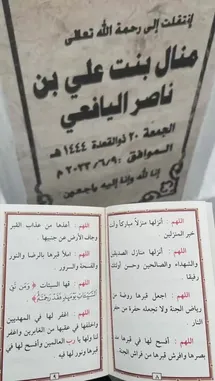 إنتقلت إلى رحمة الله تعالى
منال بنت علي بن
ناصر اليافعي
الجمعة ٢٠ ذوالقعدة ١٤٤٤هـ
الموافق : ٢٠٢٣/٦/٩م
إنا لله وإنا إليه راجعون
اللهم : أنزلها منزلاً مباركاً وأنت
خير المنزلين .
اللهم : أنزلها منازل الصديقين
والشهداء والصالحين وحسن أولئك
رفيقا .
اللهم : اجعل قبرها روضة من
رياض الجنة ولا تجعله حفرة من حفر
النار .
اللهم : أفسح لها في قبرها مد
بصرها وافرش قبرها من فراش الجنة .
٨
اللهم : أعذها من عذاب القبر
وجاف الأرض عن جنبيها .
اللهم : املأ قبرها بالرضا والنور
والفسحة والسرور .
اللهم : قها السيئات ﴿ وَمَن تَقِ
السَّيِّئَاتِ يَوْمَئِذٍ فَقَدْ رَحِمْتَهُ ﴾
اللهم : اغفر لها في المهديين
واخلفها في عقبها من الغابرين واغفر
لنا ولها يا رب العالمين وأفسح لها في
قبرها ونور لها فيه .
٩